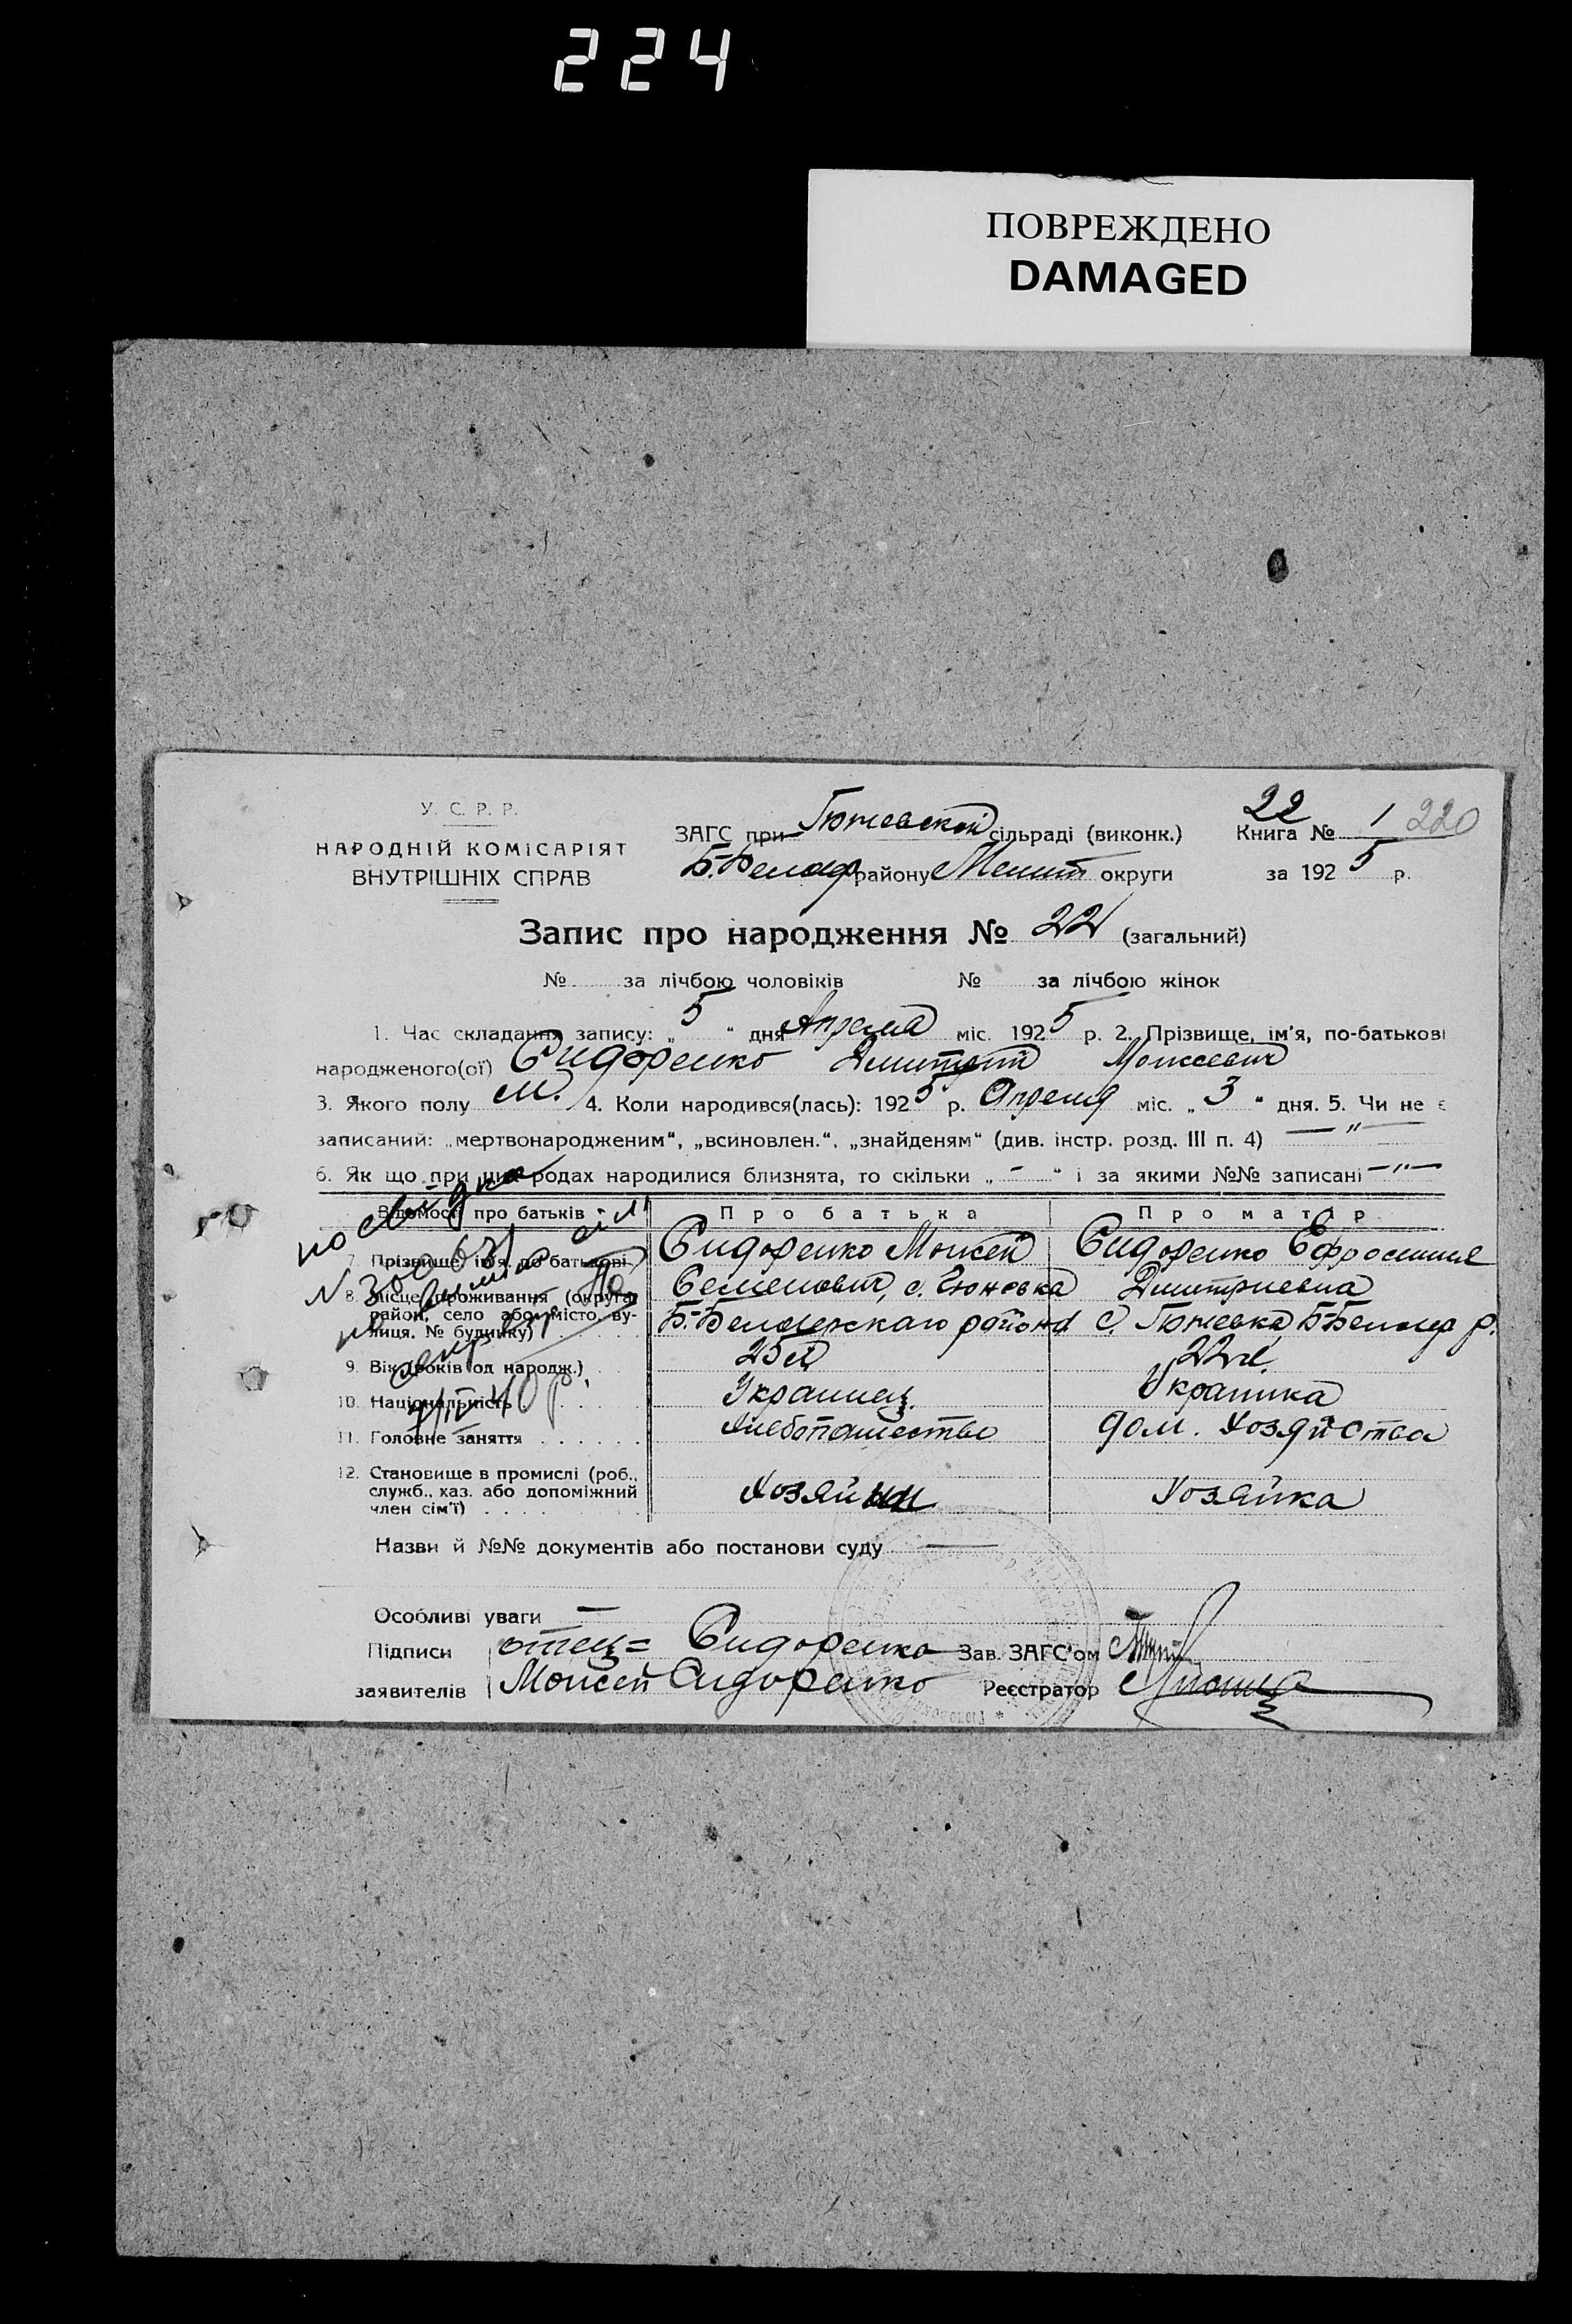 224
ПОВРЕЖДЕНО
DAMAGED
У. С. Р. Р.
НАРОДНІЙ КОМІСАРІЯТ
ВНУТРІШНІХ СПРАВ
22
ЗАГС при сільраді (виконк.) Книга № 1 220
району округи за 1925 р.
Запис про народження № 22 (загальний)
№ за лічбою чоловіків № за лічбою жінок
1. Час складання запису: „5“ дня Апреля міс. 1925 р. 2. Прізвище, ім'я, по-батькові
народженого(ої) Сидоренко Дмитрий Моисеевич
3. Якого полу М. 4. Коли народився(лась): 1925 р. Апреля міс. „3“ дня. 5. Чи не є
записаний: „мертвонародженим“, „всиновлен.“, „знайденям“ (див. інстр. розд. III п. 4) — " —
6. Як що при цих родах народилися близнята, то скільки „-“ і за якими №№ записані — " —
Відомості про батьків Про батька Про матір
7. Прізвище, ім'я, по батькові Сидоренко Моисей Сидоренко Ефросиния
8. Місце проживання (округа, Семенович, с. Дмитриевна
район, село або місто, ву- района с. р.
лиця, № будинку)
9. Вік (років од народж.) 25 л 22 л.
10. Національність Украинец Украинка
11. Головне заняття Хлебопашество дом. Хозяйство
12. Становище в промислі (роб.,
служб., хаз. або допоміжний Хозяин Хозяйка
член сім'ї)
Назви й №№ документів або постанови суду —
Особливі уваги —
Підписи отец = Сидоренко Зав. ЗАГС'ом
заявителів Моисей Сидоренко Реєстратор